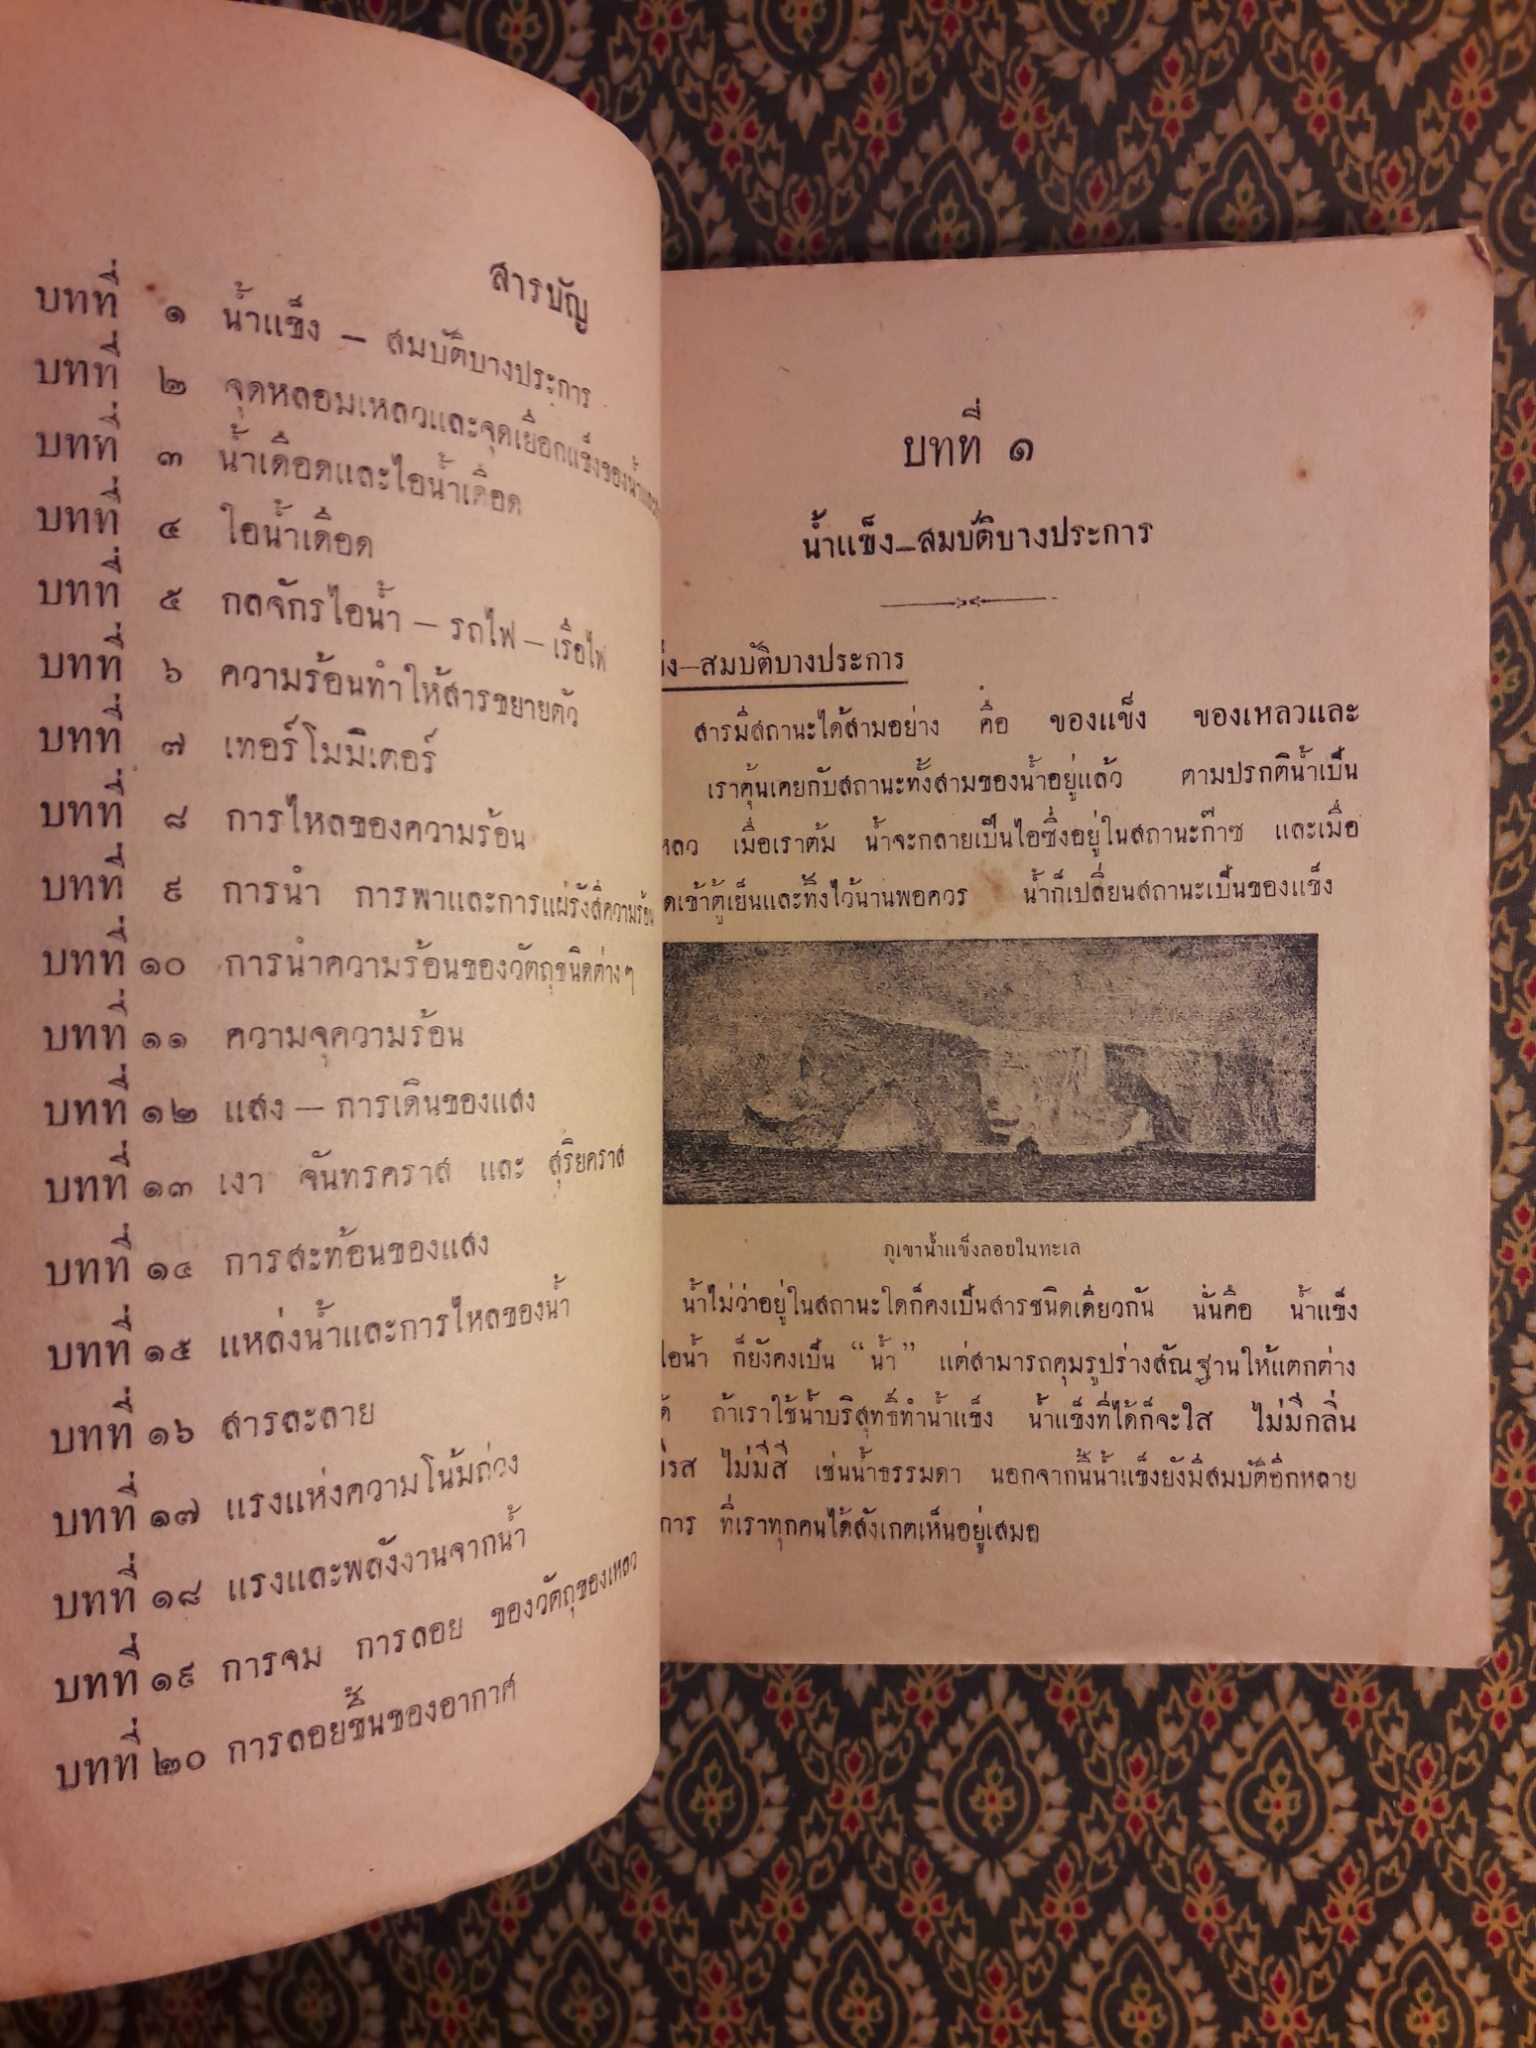 สารบัญ
บทที่ ๑ น้ำแข็ง – สมบัติบางประการ
บทที่ ๒ จุดหลอมเหลวและจุดเยือกแข็งของน้ำ
บทที่ ๓ น้ำเดือดและไอน้ำเดือด
บทที่ ๔ ไอน้ำเดือด
บทที่ ๕ กลจักรไอน้ำ – รถไฟ – เรือไฟ
บทที่ ๖ ความร้อนทำให้สารขยายตัว
บทที่ ๗ เทอร์โมมิเตอร์
บทที่ ๘ การไหลของความร้อน
บทที่ ๙ การนำ การพาและการแผ่รังสีความร้อน
บทที่ ๑๐ การนำความร้อนของวัตถุชนิดต่างๆ
บทที่ ๑๑ ความจุความร้อน
บทที่ ๑๒ แสง – การเดินของแสง
บทที่ ๑๓ เงา จันทรคราส และ สุริยคราส
บทที่ ๑๔ การสะท้อนของแสง
บทที่ ๑๕ แหล่งน้ำและการไหลของน้ำ
บทที่ ๑๖ สารละลาย
บทที่ ๑๗ แรงแห่งความโน้มถ่วง
บทที่ ๑๘ แรงและพลังงานจากน้ำ
บทที่ ๑๙ การจม การลอย ของวัตถุของเหลว
บทที่ ๒๐ การลอยขึ้นของอากาศ
บทที่ ๑
น้ำแข็ง–สมบัติบางประการ
ข็ง–สมบัติบางประการ
สารมีสถานะได้สามอย่าง คือ ของแข็ง ของเหลวและ
เราคุ้นเคยกับสถานะทั้งสามของน้ำอยู่แล้ว ตามปรกติน้ำเป็น
หลว เมื่อเราต้ม น้ำจะกลายเป็นไอซึ่งอยู่ในสถานะก๊าซ และเมื่อ
เข้าตู้เย็นและทิ้งไว้นานพอควร น้ำก็เปลี่ยนสถานะเป็นของแข็ง
ภูเขาน้ำแข็งลอยในทะเล
น้ำไม่ว่าอยู่ในสถานะใดก็คงเป็นสารชนิดเดียวกัน นั่นคือ น้ำแข็ง
ไอน้ำ ก็ยังคงเป็น “น้ำ” แต่สามารถคุมรูปร่างสัณฐานให้แตกต่าง
ได้ ถ้าเราใช้น้ำบริสุทธิ์ทำน้ำแข็ง น้ำแข็งที่ได้ก็จะใส ไม่มีกลิ่น
มีรส ไม่มีสี เช่นน้ำธรรมดา นอกจากนี้น้ำแข็งยังมีสมบัติอีกหลาย
การ ที่เราทุกคนได้สังเกตเห็นอยู่เสมอ